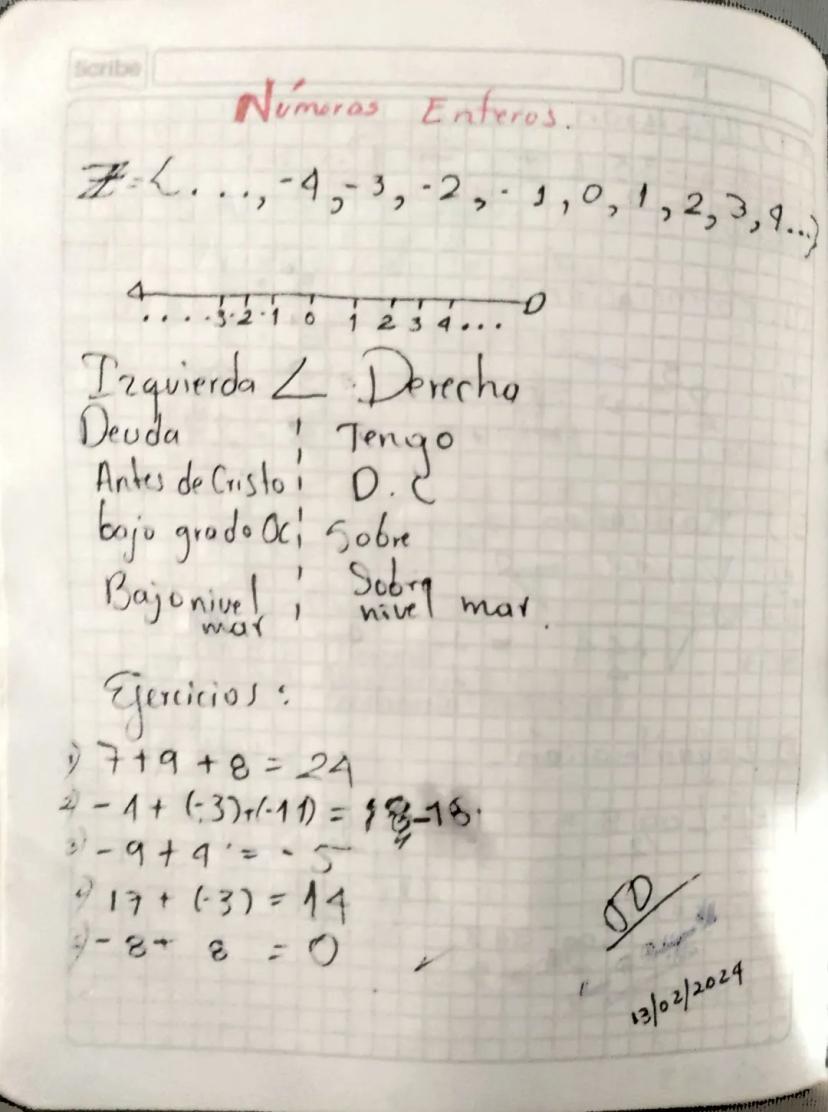 Scribe
Números Enteros.
Z = {. . ., -4, -3, -2, -1, 0, 1, 2, 3, 4...}
. . . . -3 -2 -1 0 1 2 3 4 . . .
Izquierda < Derecha
Deuda ¦ Tengo
Antes de Cristo ¦ D.C
bajo grado 0c ¦ Sobre
Bajo nivel mar ¦ Sobre nivel mar.
Ejercicios:
1) 7 + 9 + 8 = 24
2) - 4 + (-3) + (-11) = -18.
3) - 9 + 4 = - 5
4) 17 + (-3) = 14
5) - 8 + 8 = 0
50
13/02/2024